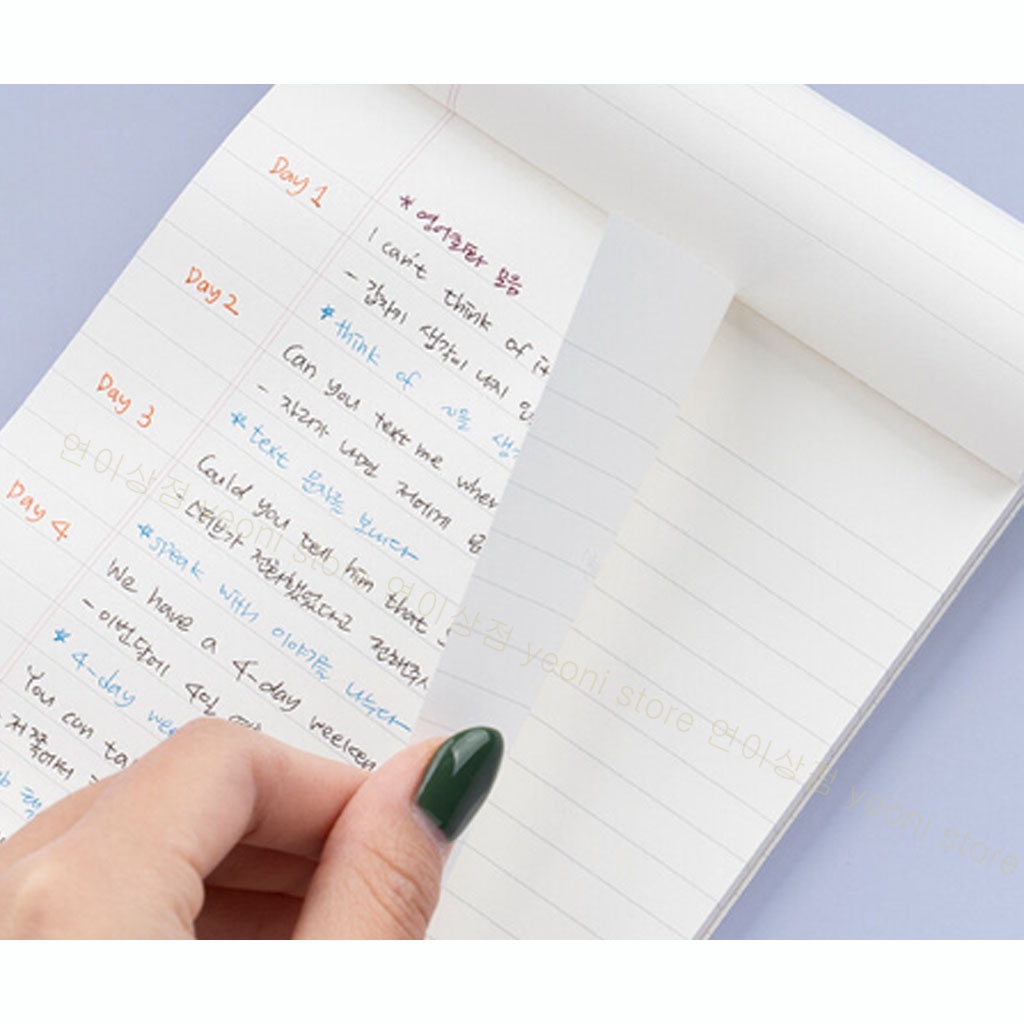 Day 1
* 영어회화 모음
I can't think of it
- 갑자기 생각이 나지 않
Day 2
* think of ~을 생각
Can you text me when
- 자리가 나면 저에게 문
Day 3
* text 문자를 보내다
Could you tell him that
- 스티브가 전화했었다고 전해주시
Day 4
* speak with 이야기를 나누다
We have a 4-day weeken
- 이번달에 4일
* 4-day wee
You can ta
저쪽에서
연이상점 yeoni store 연이상점 yeoni store 연이상점 yeoni store